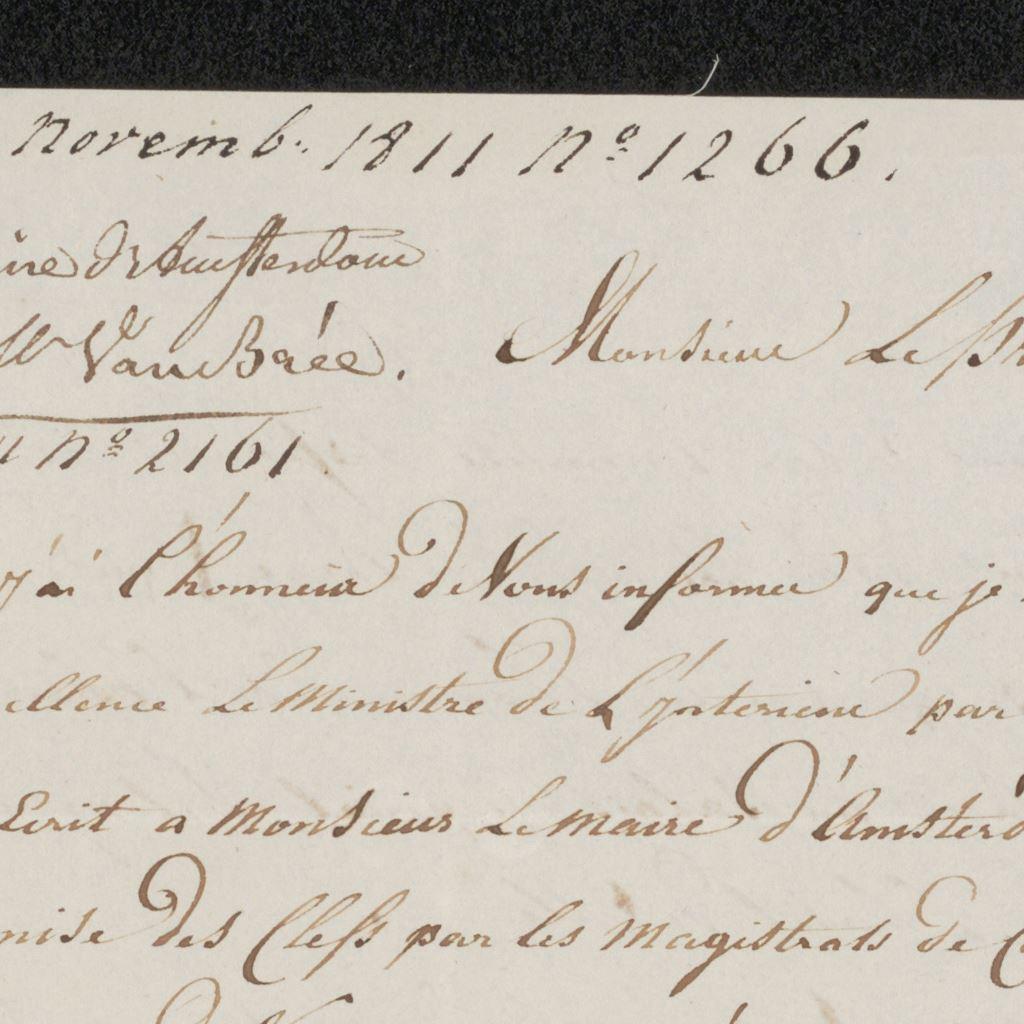 Novemb. 1811 Nº 1266.
ire d'Amsterdam
Van Brée.
Monsieur Le Pr
Nº 2161
j'ai l'honneur de Vous informer que je
ellence Le Ministre de L'Jnterieur par
Ecrit a Monsieur Le Maire d'Amsterd
mise des Clefs par les Magistrats de C